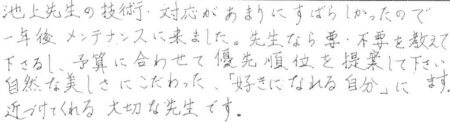 池上先生の技術・対応があまりにすばらしかったので
一年後メンテナンスに来ました。先生なら要・不要を教えて
下さるし、予算に合わせて優先順位を提案して下さい
自然な美しさにこだわった、「好きになれる自分」に ます。
近づけてくれる大切な先生です。